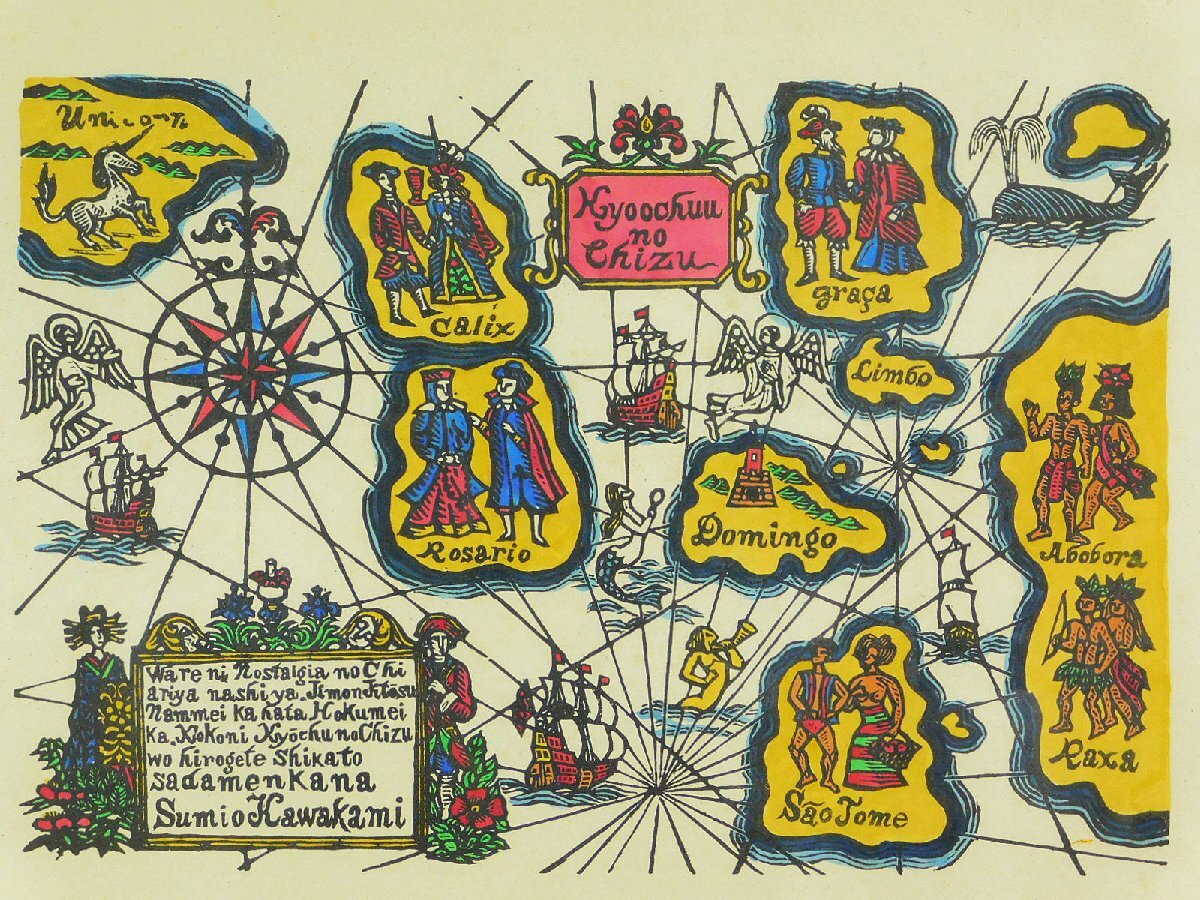 Unicorn
Calix
Kyoochuu
no
Chizu
graça
Limbo
Rosario
Domingo
Abobora
Ware ni Nostalgia no Chi
ariya nashi ya. Jimonchitasu
Nammei ka hata Hokumei
ka. Kokoni Kyōchu no Chizu
wo hirogete Shikato
sadamenkana
Sumio Kawakami
São Tome
Raxa